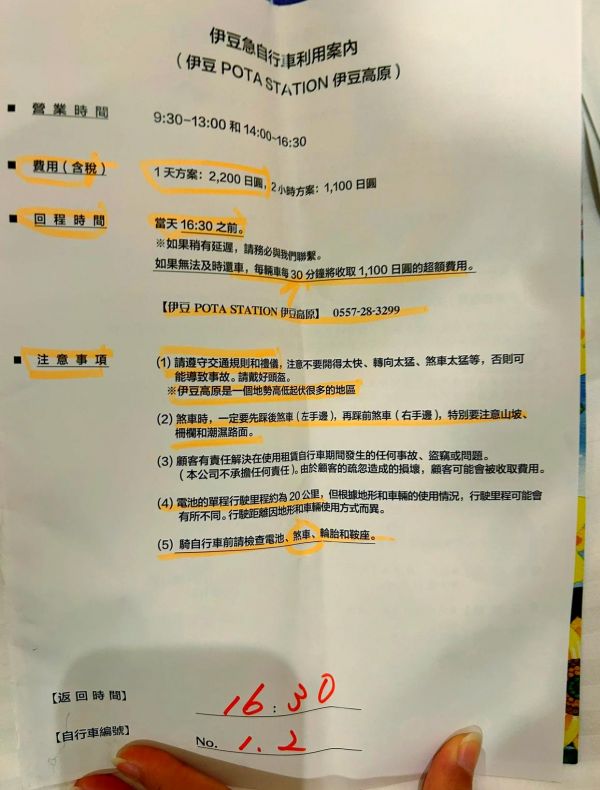 伊豆急自行車利用案內
（伊豆 POTA STATION 伊豆高原）
■ 營業時間 9:30-13:00 和 14:00~16:30
■ 費用（含稅） 1天方案：2,200 日圓，2小時方案：1,100 日圓
■ 回程時間 當天 16:30 之前。
※如果稍有延遲，請務必與我們聯繫。
如果無法及時還車，每輛車每30分鐘將收取 1,100 日圓的超額費用。
【伊豆 POTA STATION 伊豆高原】 0557-28-3299
■ 注意事項 (1) 請遵守交通規則和禮儀，注意不要開得太快、轉向太猛、煞車太猛等，否則可
能導致事故。請戴好頭盔。
※伊豆高原是一個地勢高低起伏很多的地區
(2) 煞車時，一定要先踩後煞車（左手邊），再踩前煞車（右手邊），特別要注意山坡、
柵欄和潮濕路面。
(3) 顧客有責任解決在使用租賃自行車期間發生的任何事故、盜竊或問題。
（本公司不承擔任何責任）。由於顧客的疏忽造成的損壞，顧客可能會被收取費用。
(4) 電池的單程行駛里程約為 20 公里，但根據地形和車輛的使用情況，行駛里程可能會
有所不同。行駛距離因地形和車輛使用方式而異。
(5) 騎自行車前請檢查電池、煞車、輪胎和鞍座。
【返回時間】 16:30
【自行車編號】 No. 1.2